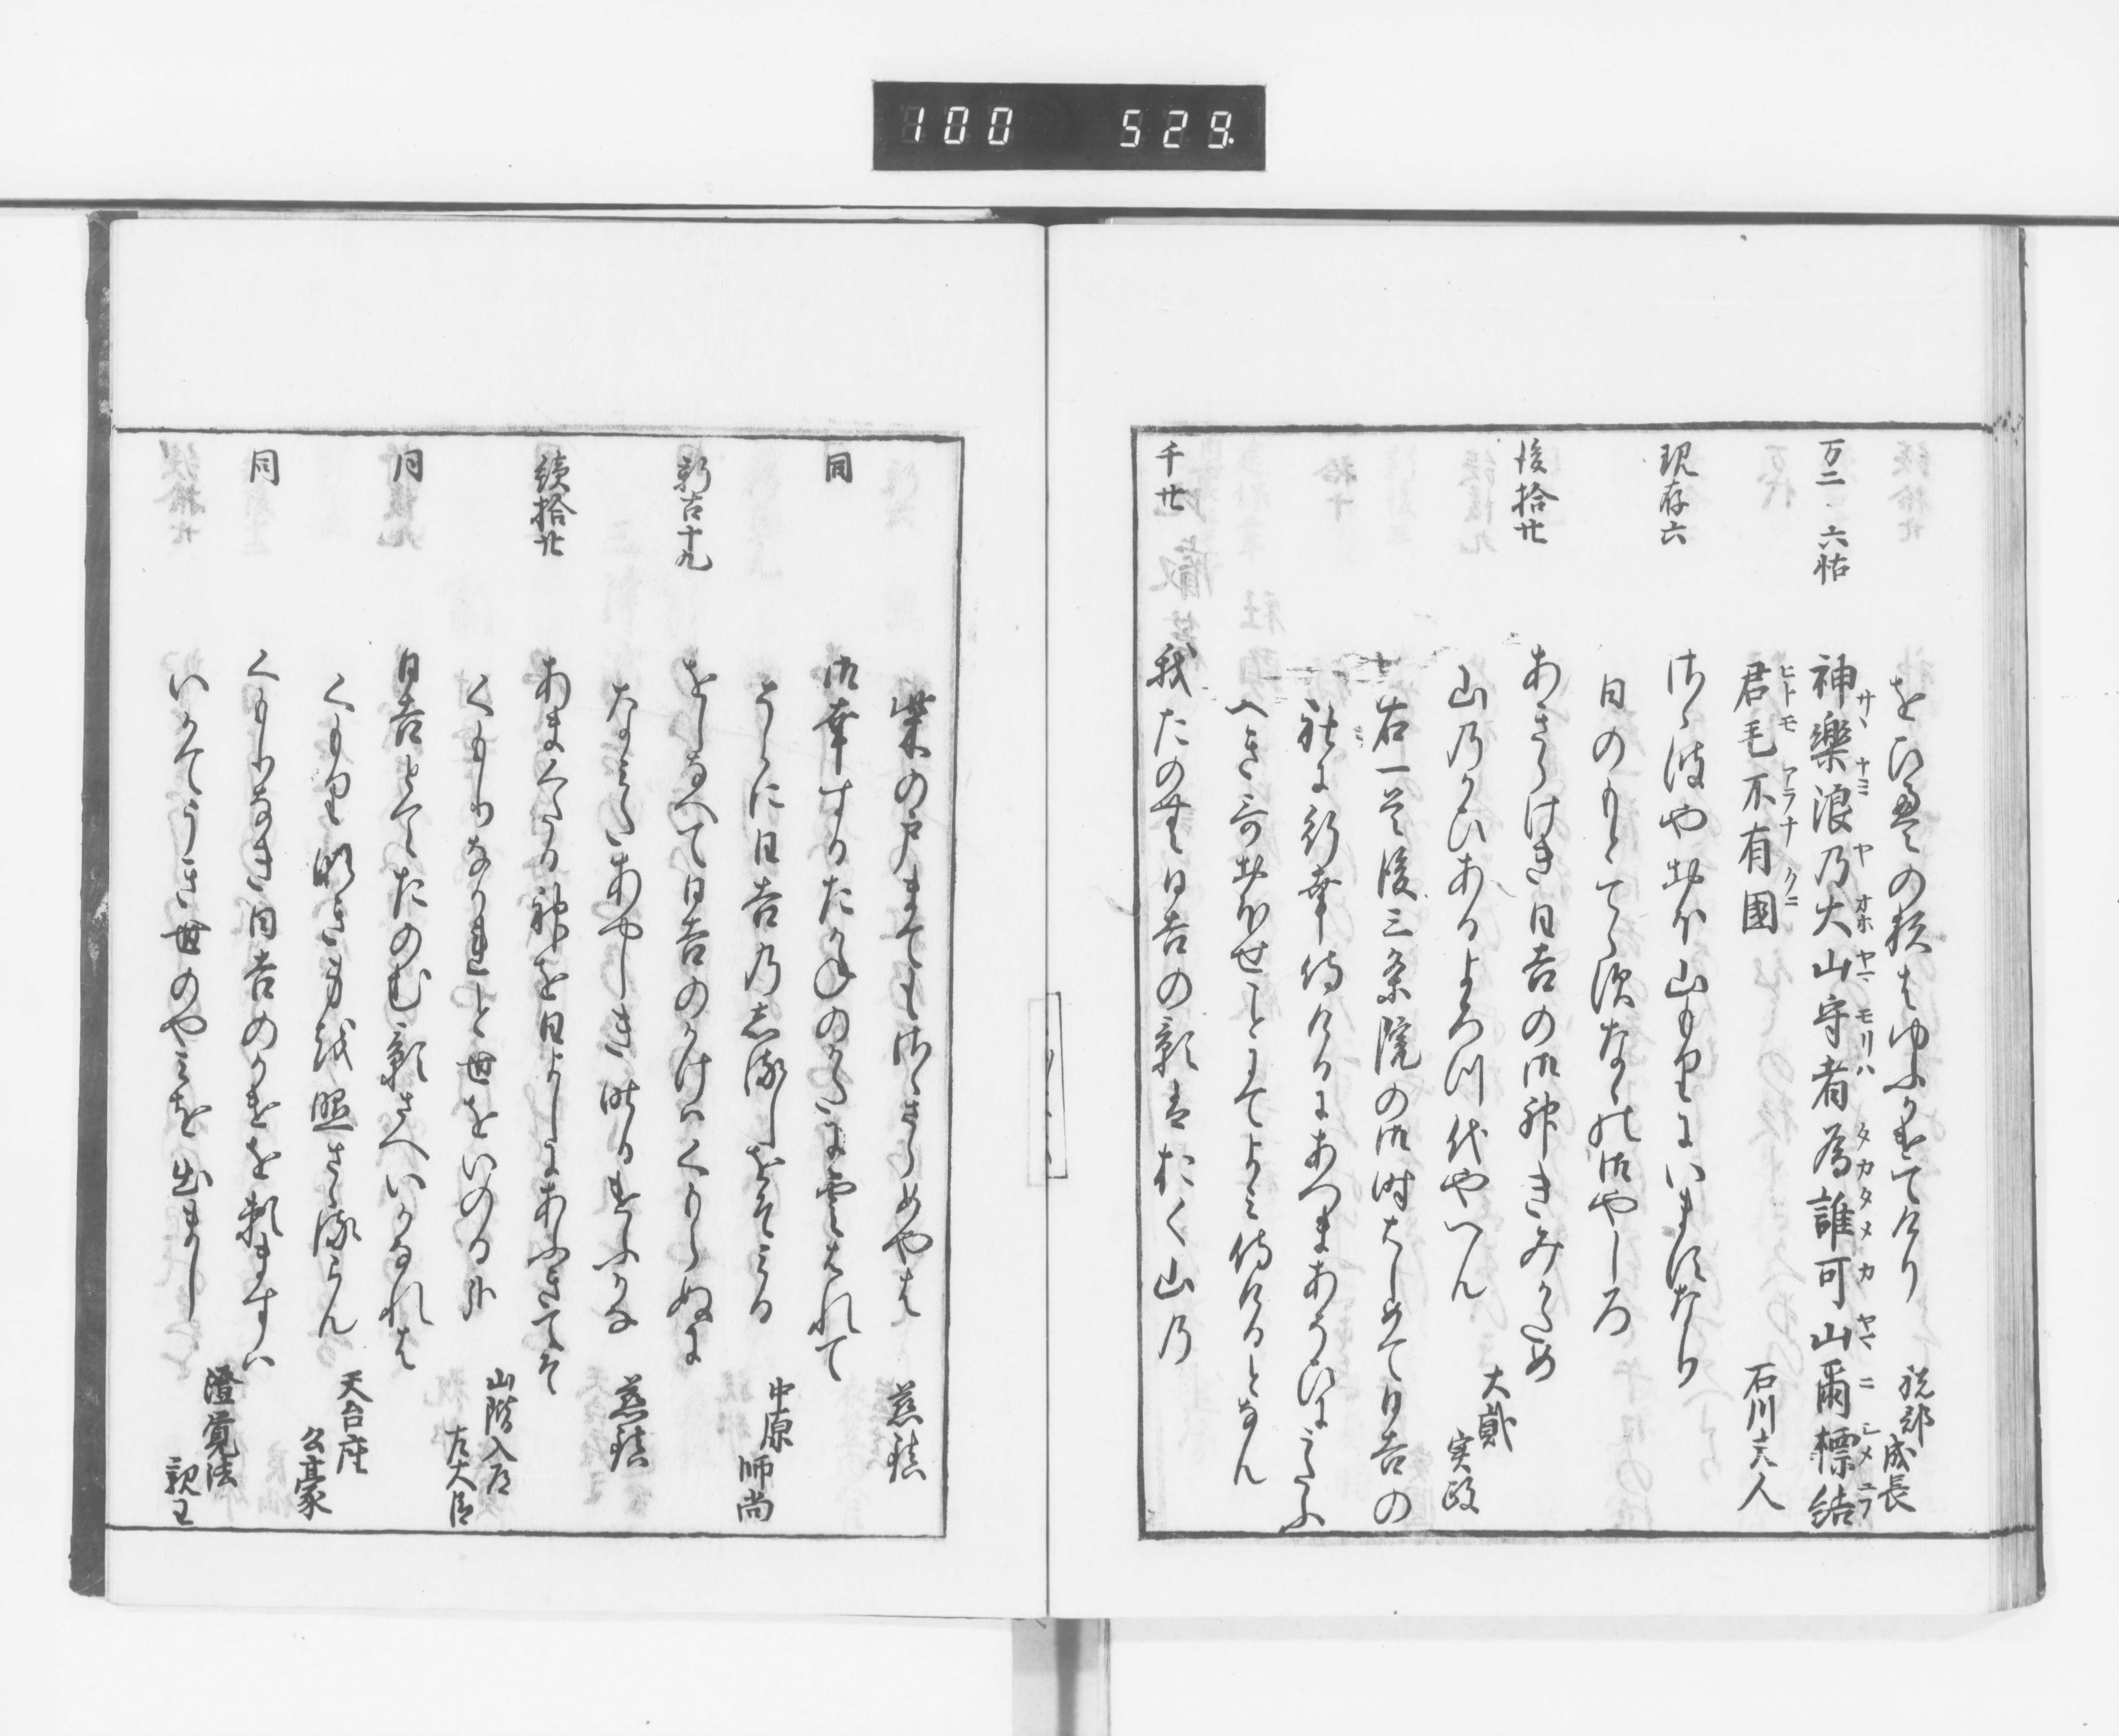 100 529
をひえの杉はゆふかけてけり 祝部成長
万二 六帖 神樂浪乃大山守者為誰可山爾標結
サヽナミ ヤ オホヤマモリハ タカタメカ ヤマ ニ シメユフ
君毛不有國 石川夫人
ヒトモ アラナクニ
現存六 さゝ波やおほ山もりにいますなり
日のもとてらすなゝの御やしろ
後拾廿 あきらけき日吉の御神きみかため
山のかひあるよろつ代やへん 大貳実政
右一首後三条院の御時はしめて日吉の
社に行幸侍けるにあつまあそひにうたふ
へき哥おほせことにてよみ侍けるとなん
千廿 我たのむ日吉の影はおく山の
柴の戸まてもさゝさらめやは 慈鎮
同 御幸するたかねのかたに雲はれて
そらに日吉のしるしをそみる 中原師尚
新古十九 をしなへて日吉のかけはくもらぬに
なみたあやしき昨日けふかな 慈鎮
續拾廿 あまくたる神を日よしにあふきてそ
くもりなかれと世をいのる哉 山階入道左大臣
同 日吉とてたのむ影さへいかなれは
くもりなき身を照さゝるらん 天台座公豪
同 くもりなき日吉のかけを頼ますは
いかてうき世のやみを出まし 澄覚法親王